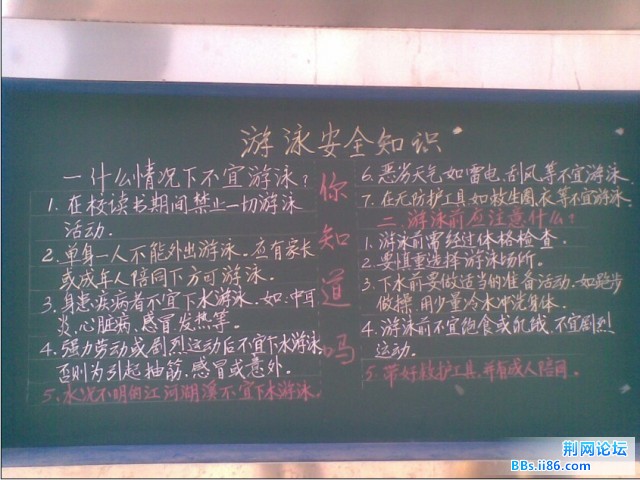 游泳安全知识
一什么情况下不宜游泳?
1. 在校读书期间禁止一切游泳
活动.
2. 单身一人不能外出游泳. 应有家长
或成年人陪同下方可游泳.
3. 身患疾病者不宜下水游泳. 如:中耳
炎、心脏病、感冒发热等.
4. 强力劳动或剧烈运动后不宜下水游泳
否则为引起抽筋,感冒或意外.
5. 水况不明的江河湖溪不宜下水游泳.
你知道吗
6. 恶劣天气如雷电,刮风,等不宜游泳.
7. 在无防护工具如救生圈、衣等不宜游泳.
二 游泳前应注意什么?
1. 游泳前需经过体格检查.
2. 要慎重选择游泳场所.
3. 下水前要做适当的准备活动. 如跑步
做操. 用少量冷水冲洗身体.
4. 游泳前不宜饱食或饥饿, 不宜剧烈
运动.
5. 带好救护工具,并有成人陪同.
荆网论坛
BBs.ii86.com